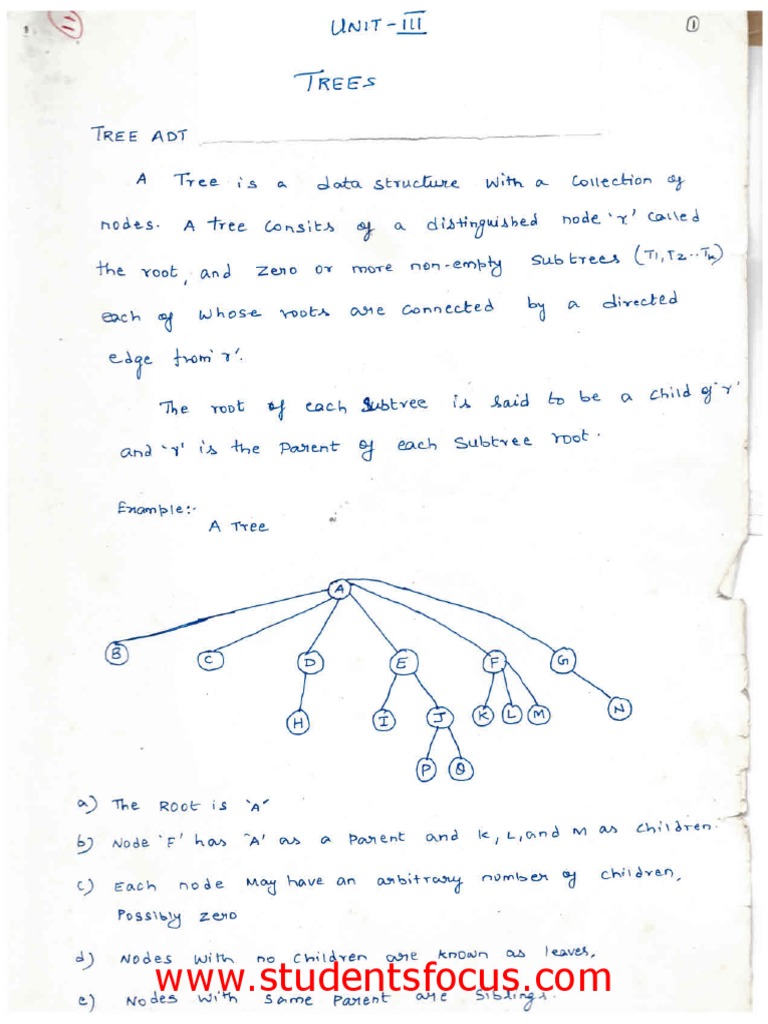 11
①
UNIT-III
TREES
TREE ADT
A Tree is a data structure with a collection of
nodes. A tree consits of a distinguished node 'r' called
the root, and zero or more non-empty subtrees (T1,T2..Tk)
each of whose roots are connected by a directed
edge from 'r'.
The root of each subtree is said to be a child of 'r'
and 'r' is the parent of each subtree root.
Example:-
A Tree
A
B C D E F G
H I J K L M N
P Q
a) The ROOT is 'A'
b) Node 'F' has 'A' as a parent and K, L, and M as children.
c) Each node may have an arbitrary number of children,
Possibly zero
d) Nodes with no children are known as leaves,
www.studentsfocus.com
e) Nodes with same parent are siblings.